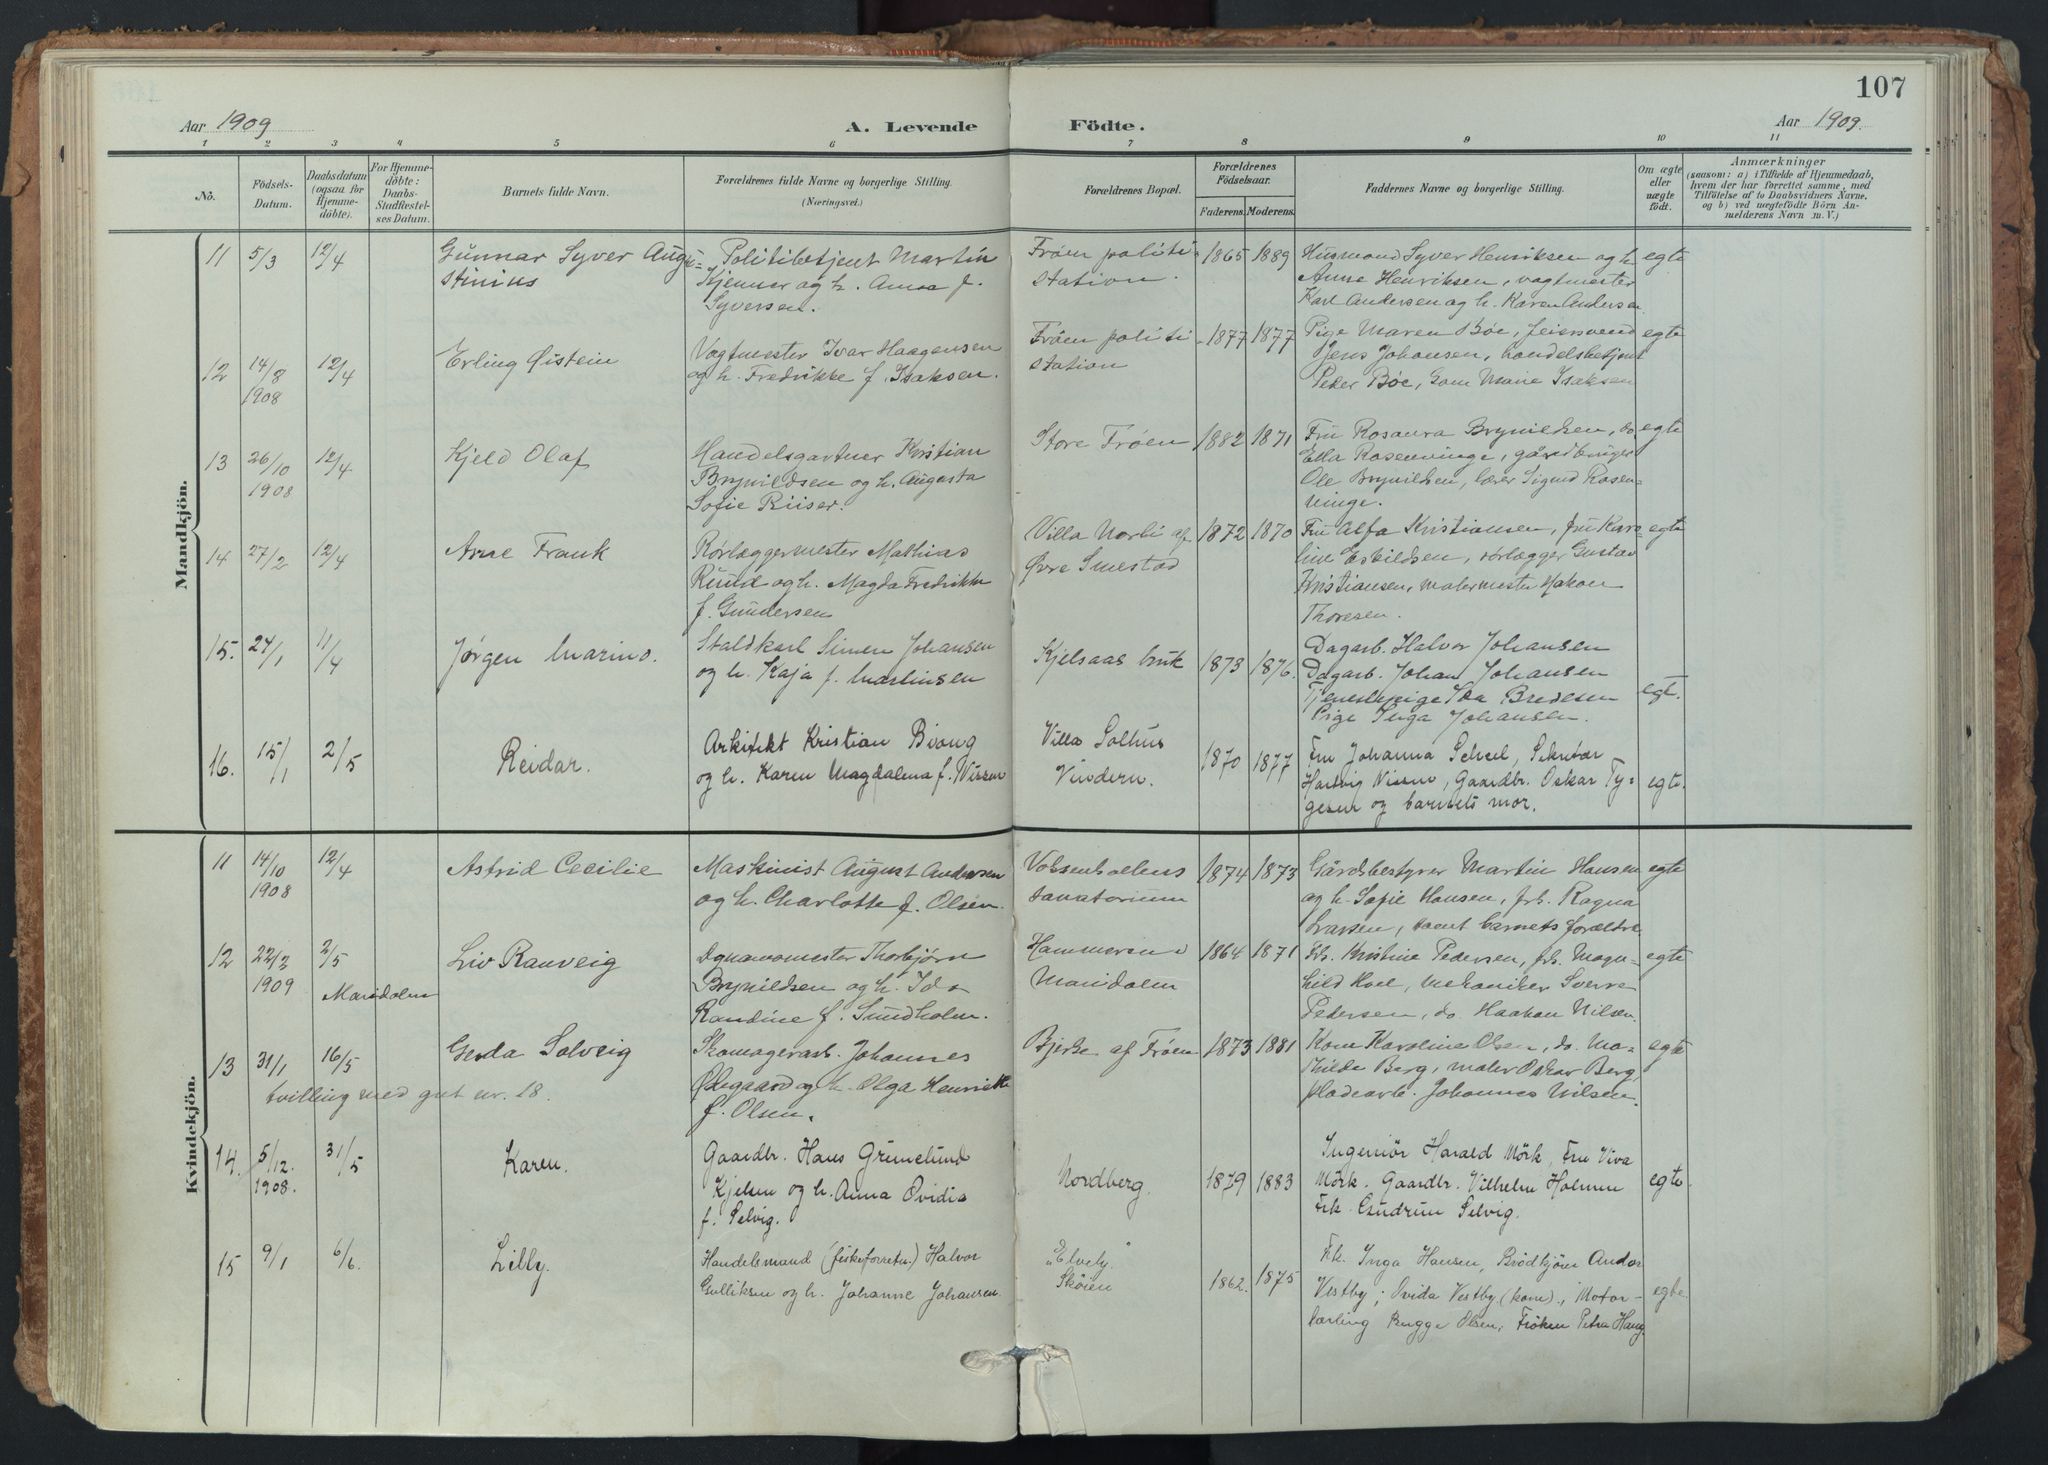 107
Aar 1909
A. Levende Födte.
Aar 1909.
1 2 3 4 5 6 7 8 9 10 11
No.
Födsels-Datum.
Daabsdatum (ogsaa for Hjemmedöbte).
For Hjemmedöbte: Daabs-Stadfæstelses Datum.
Barnets fulde Navn.
Forældrenes fulde Navne og borgerlige Stilling. (Næringsvei.)
Forældrenes Bopæl.
Forældrenes Födselsaar.
Faderens. Moderens.
Faddernes Navne og borgerlige Stilling.
Om ægte eller uægte födt.
Anmærkninger
(saasom: a) i Tilfælde af Hjemmedaab,
hvem der har forrettet samme, med
Tilföielse af to Daabsvidners Navne,
og b) ved uægtefödte Börn An-
melderens Navn m. V.)
Mandkjön.
11 5/3 12/4 Gunnar Syver Augu= Politibetjent Martin Frøen politi- 1865 1889 Husmand Syver Henriksen og h. egte
stinius Kjenner og h. Anna f. station. Anne Henriksen, vagtmester
Syversen. Karl Andersen og h. Karen Andersen
12 14/8 1908 12/4 Erling Øistein Vagtmester Ivar Haagensen Frøen politi- 1877 1877 Pige Maren Bøe, feiersvend egte
og h. Fredrikke f. Isaksen. station Jens Johansen, handelsbetjent
Peder Bøe, Gom Marie Isaksen
13 26/10 1908 12/4 Kjeld Olaf Handelsgartner Kristian Store Frøen 1882 1871 Fru Rosaura Brynildsen, do egte
Brynildsen og h. Augusta Ella Rosenvinge, gårdbruger
Sofie Riiser. Ole Brynildsen, lærer Sigurd Rosen-
vinge.
14 27/2 12/4 Arne Frank Rørlæggermester Mathias Villa Norbi af 1872 1870 Fru Alfa Kristiansen, fru Karo- egte
Ruud og h. Magda Fredrikke Øvre Smestad line Eskildsen, rørlægger Gustav
f. Gundersen Kristiansen, malermester Hakon
Thoresen.
15. 24/1 11/4 Jørgen Marino. Staldkarl Simen Johansen Kjelsaas bruk 1873 1876. Dagarb. Halvor Johansen
og h. Kaja f. Martinsen Dagarb. Johan Johansen
Tjenestepige Ida Bredesen egt.
Pige Inga Johansen.
16. 15/1 2/5 Reidar. Arkitekt Kristian Biong Villa Solhus 1870 1877 Fru Johanna Scheel, Sekretær
og h. Karen Magdalena f. Nissen Vindern. Hartvig Nissen, Gaardbr. Oskar Ty= egte.
gesen og barnets mor.
Kvindekjön.
11 14/10 1908 12/4 Astrid Cecilie Maskinist August Andersen Voksenkollens 1874 1873 Gårdsbestyrer Martin Hansen egte
og h. Charlotte f. Olsen. sanatorium og h. Sofie Hansen, frk. Ragna
Larsen, samt barnets forældre
12 22/2 1909 2/5 Maridalen Liv Ranveig Dynamomester Thorbjørn Hammeren i 1864 1871 Frk. Kristine Pedersen, frk. Magn- egte
Brynildsen og h. Ida Maridalen hild Hoel, mekaniker Sverre
Randine f. Sundholm. Pedersen, do. Haakon Nilsen.
13 31/1 16/5 Gerda Solveig Skomagerarb. Johannes Bjerke af Frøen 1873 1881 Kone Karoline Olsen, do. Ma- egte
tvilling med gut nr. 18. Ødegaard og h. Olga Henriette thilde Berg, maler Oskar Berg,
f. Olsen. pladearb. Johannes Nilsen.
14. 5/12. 1908. 31/5 Karen. Gaardbr. Hans Grimelund Nordberg. 1879 1883 Ingeniør Harald Mörk, Fru Viva
Kjelsen og h. Anna Ovidia Mörk. Gaardbr. Vilhelm Holmen egte
f. Selvig. Frk. Gudrun Selvig.
15 9/1 6/6. Lilly. Handelsmand (fiskeforretn.) Halvor „Elvely" 1862. 1875 Frk. Inga Hansen, Brödkjører Andor
Gulliksen og h. Johanne Johansen. Skøien Vestby; Ovida Vestby (kone), Motor- egte.
lærling Bugge Olsen, Frøken Petra Haug.